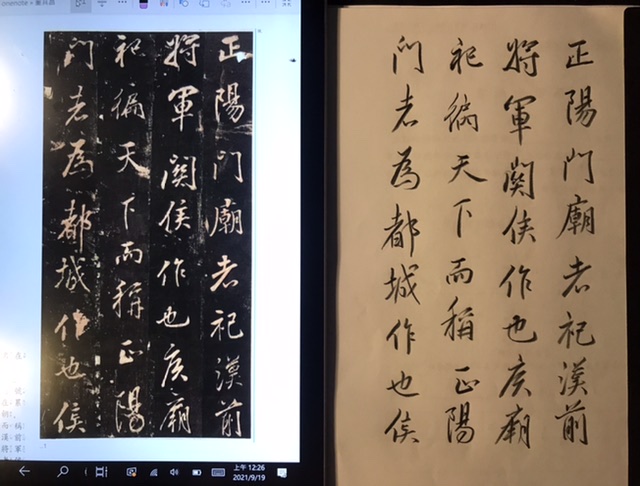 正陽門廟者祀漢前
將軍關侯作也侯廟
祀徧天下而稱正陽
門者為都城作也侯
上午 12:26
2021/9/19
正陽門廟者祀漢前
將軍關侯作也侯廟
祀徧天下而稱正陽
門者為都城作也侯